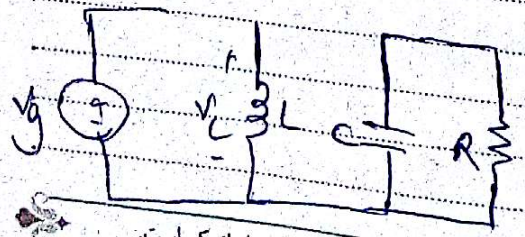 Vg + - + VL - L C R